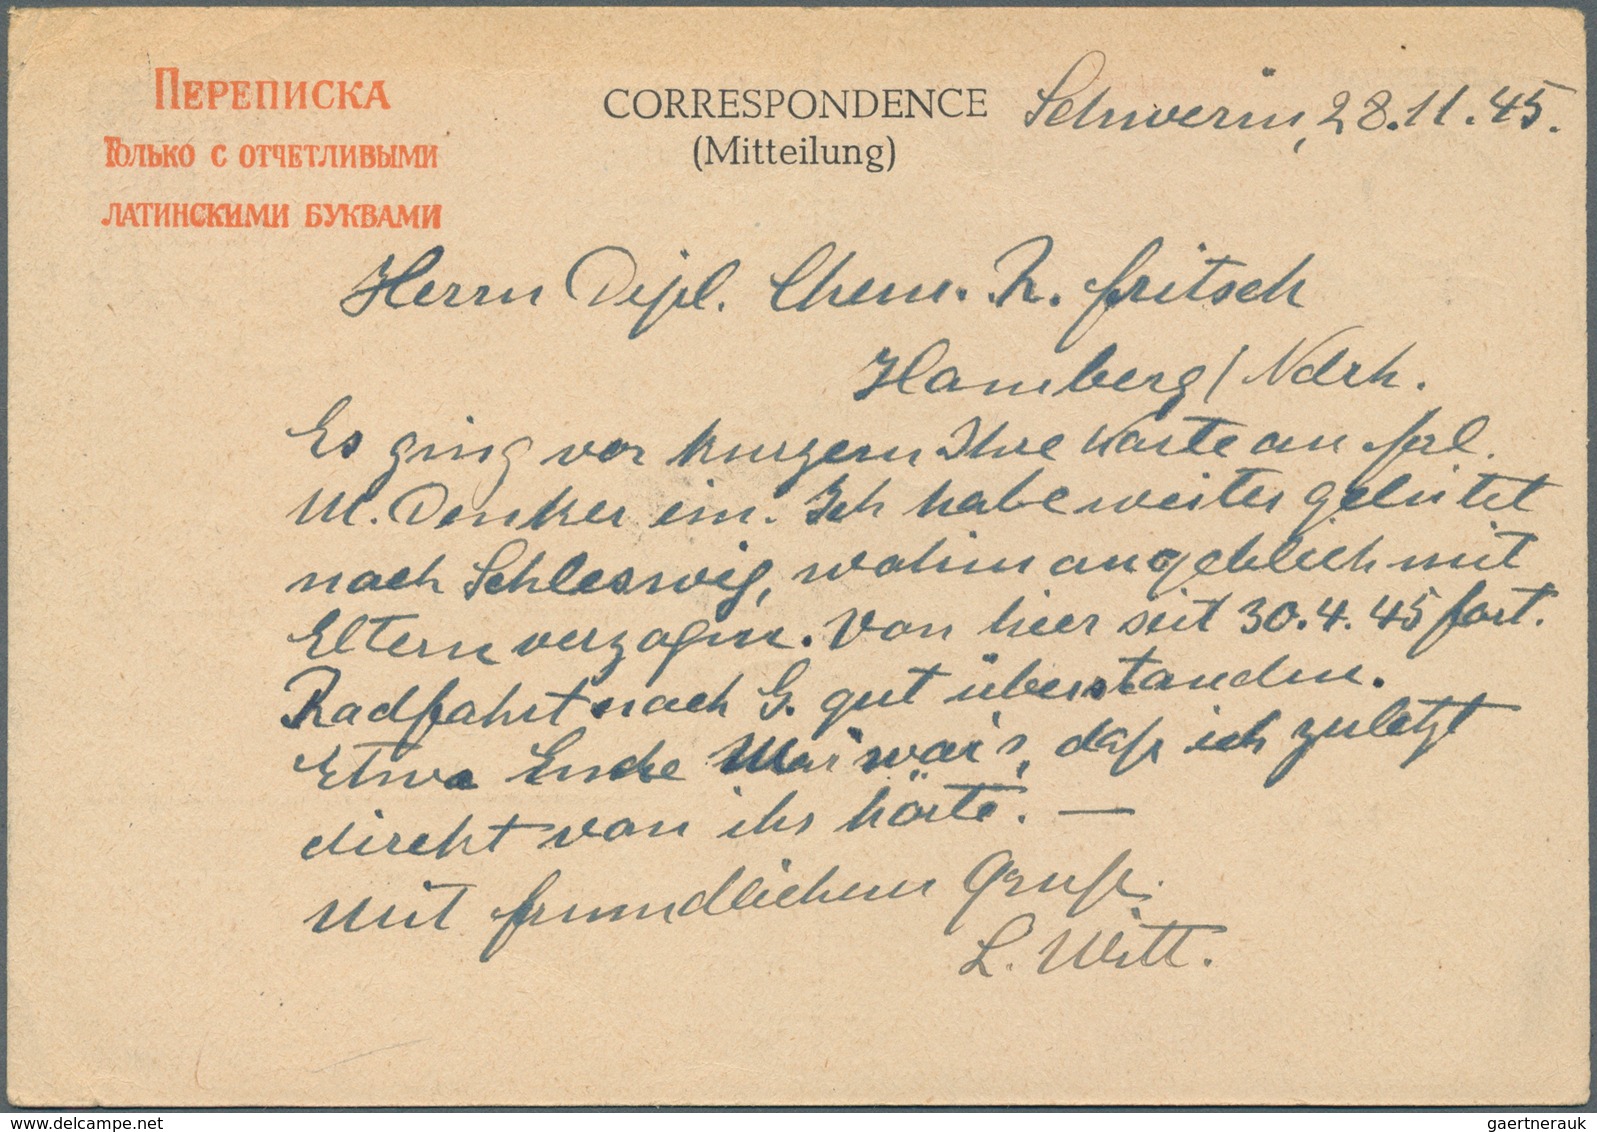 ПЕРЕПИСКА
ТОЛЬКО С ОТЧЕТЛИВЫМИ
ЛАТИНСКИМИ БУКВАМИ
CORRESPONDENCE
(Mitteilung)
Schwerin, 28.11.45.
Herrn Dipl. Chem. R. Fritsch
Hamberg/Ndrh.
Es ging vor kurzem Ihre Karte an Frl.
M. Denker ein. Ich habe weiter geleitet
nach Schleswig, wohin angeblich mit
Eltern verzogen. Von hier seit 30.4.45 fort.
Radfahrt nach G. gut überstanden.
Etwa Ende Mai war's, daß ich zuletzt
direkt von ihr hörte. —
Mit freundlichem Gruß.
L. Witt.
gaertnerauk